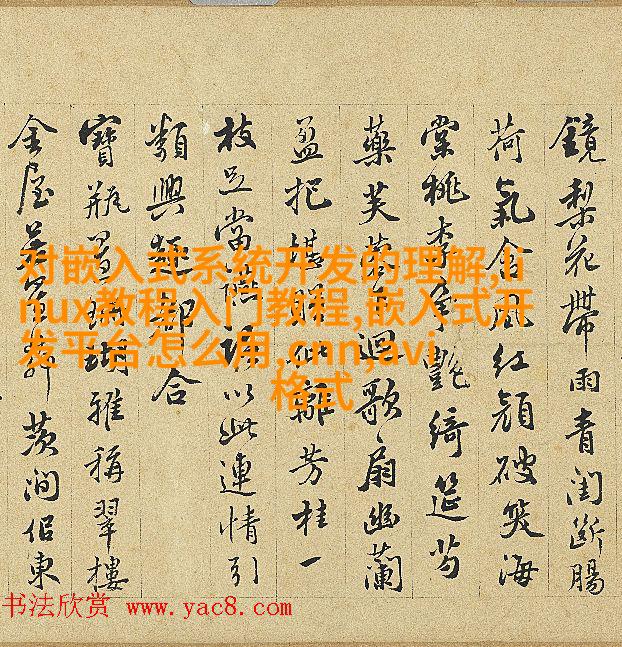 鏡梨花帶雨青閨斷腸
荷氣含風紅顔破笑海
棠桃李争艷綺筵芍
藥芙蓉迴歌扇幽蘭
盈把堪贈離芳桂一
枝足當隱以此連情引
類興趣都合
寶瓶置瑚雅稱翠樓
金屋茨澗侣東
对嵌入式系统开发的理解,li
nux教程入门教程,嵌入式开
发平台怎么用,cnn,avi
格式
书法欣赏 www.yac8.com